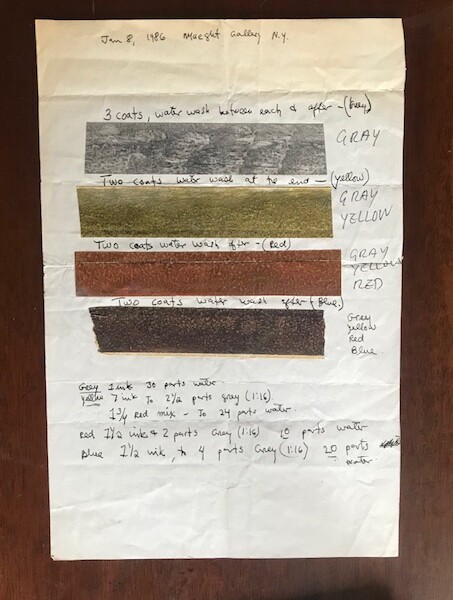 Jan 8, 1986 Maeght Gallery N.Y.
3 coats, water wash between each & after - (Grey)
GRAY
Two coats water wash at the end - (yellow)
GRAY
YELLOW
Two coats water wash after - (Red)
GRAY
YELLOW
RED
Two coats water wash after (Blue.)
Grey
Yellow
Red
Blue.
Grey 1 ink 30 parts water
Yellow 7 ink To 2 1/2 parts gray (1:16).
1 3/4 Red mix - To 24 parts water.
Red 1 1/2 ink & 2 parts Grey (1:16) 10 parts water
Blue 1 1/2 ink, to 4 parts Grey (1:16) 20 parts
water.